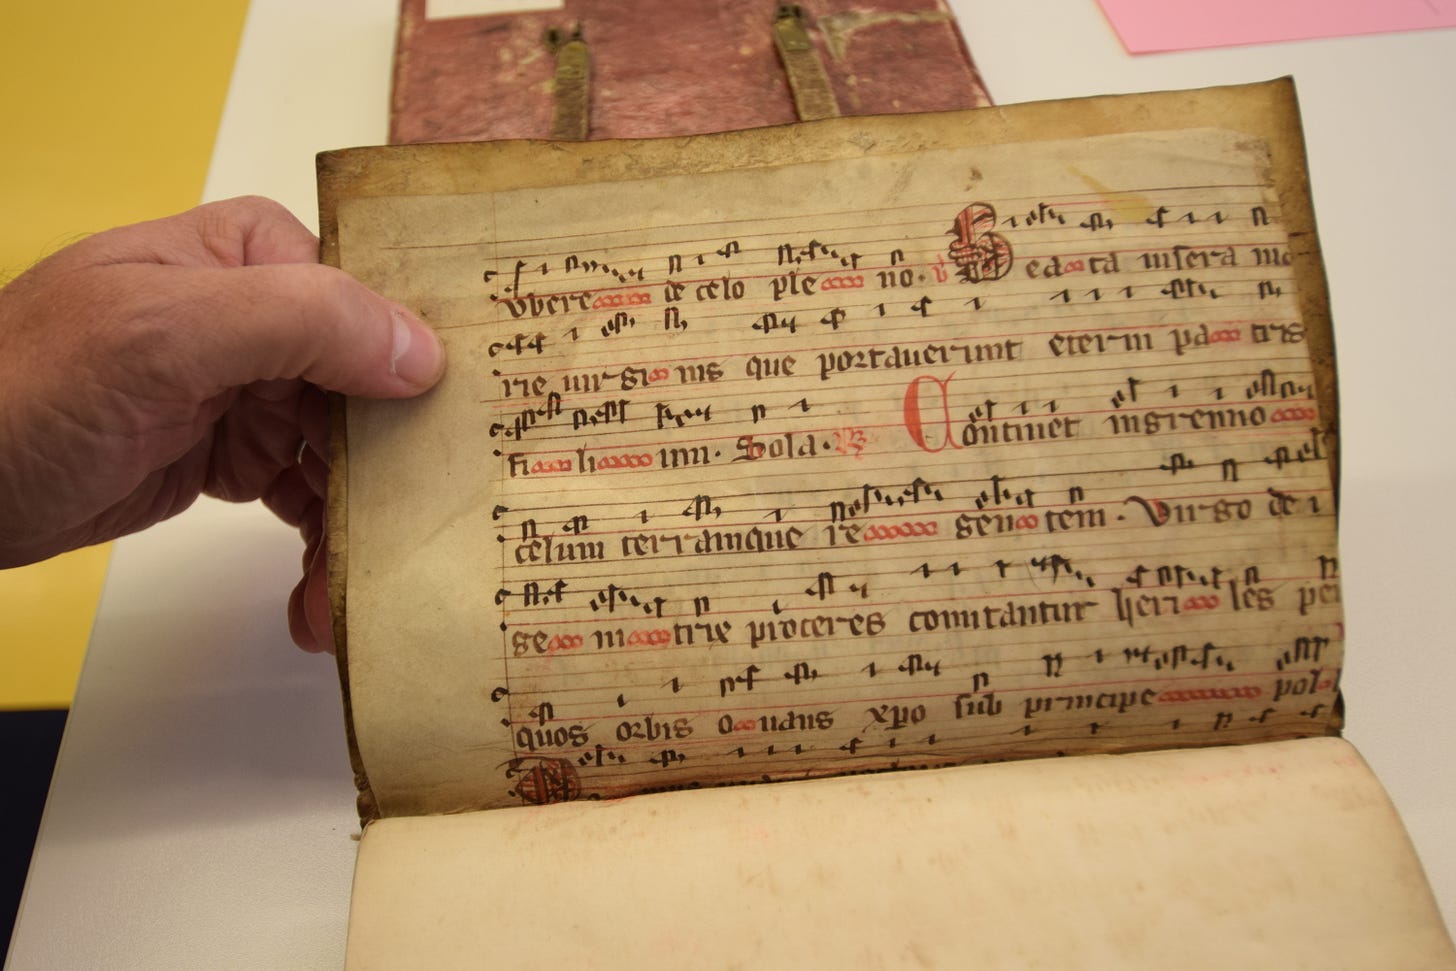 vbere de celo ple no. V Beata viscera ma
rie uirginis que portauerunt eterni patris
filium. Sola. R Continet in gremio
celum terramque regentem. Virgo dei
genitrix proceres comitantur heriles per
quos orbis ouans xpo sub principe pol